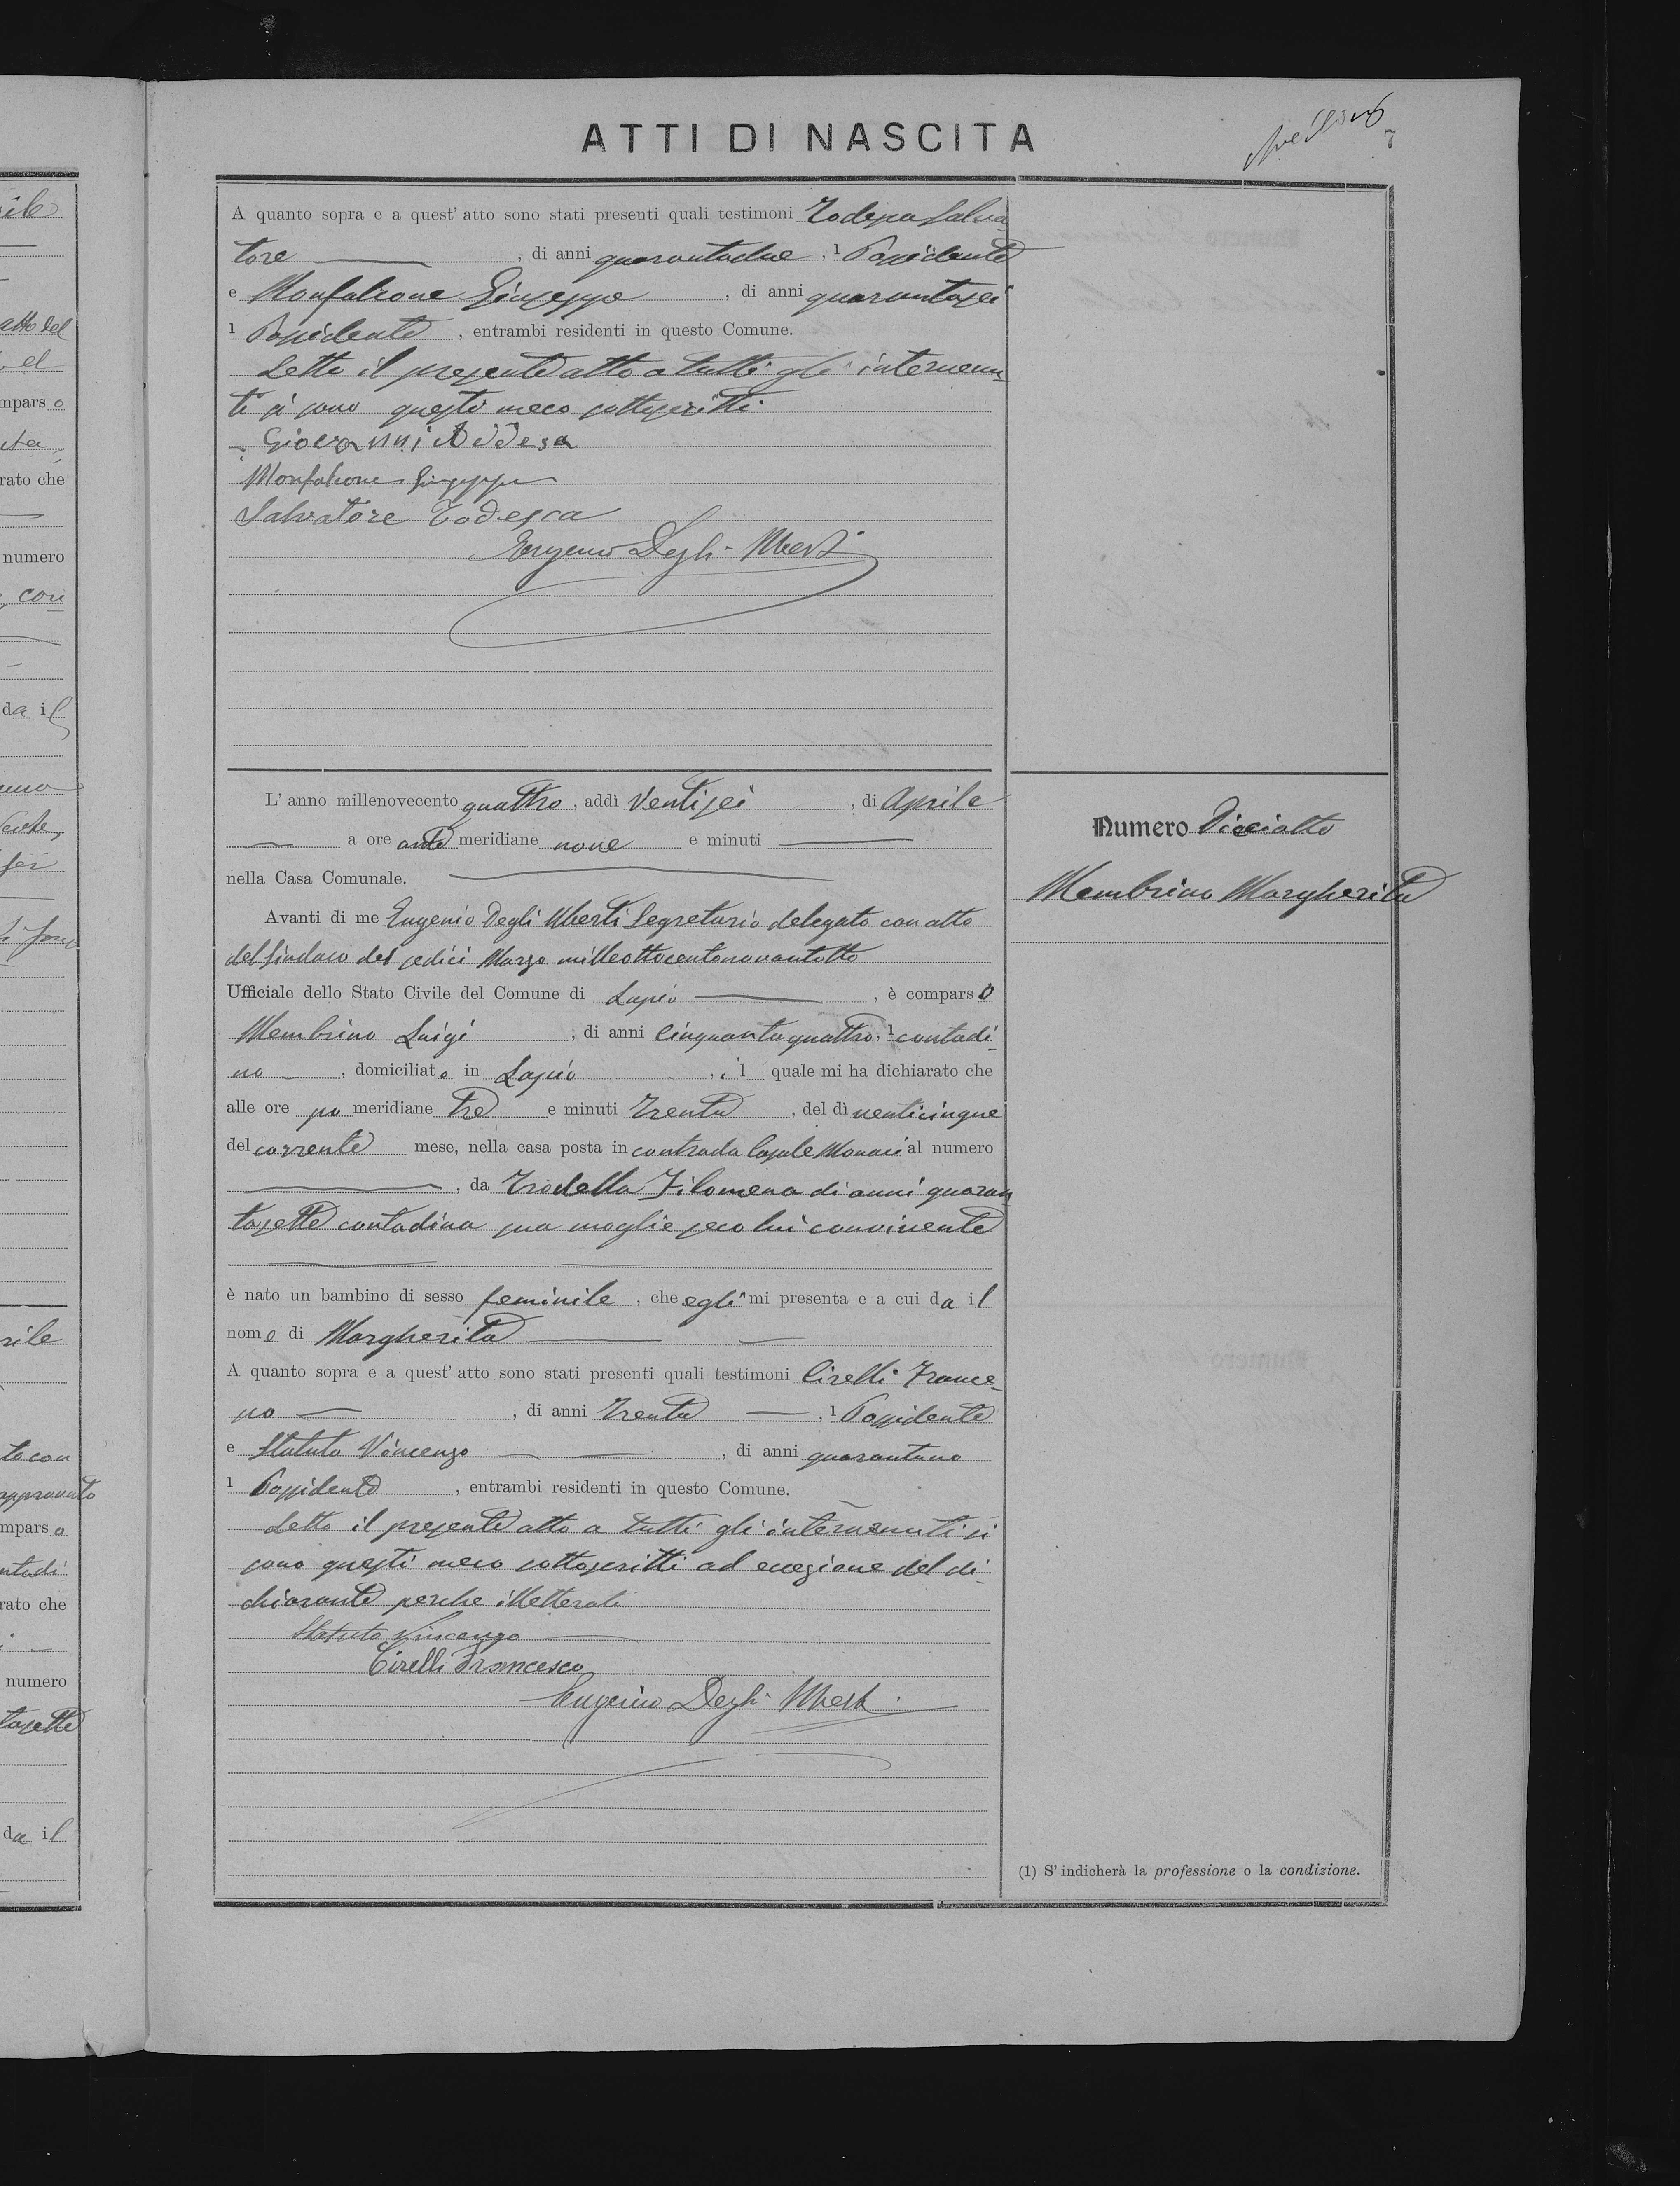 ATTI DI NASCITA
7
A quanto sopra e a quest' atto sono stati presenti quali testimoni Todesca Salva
tore, di anni quarantadue, 1 Possidente
e Monfalcone Giuseppe, di anni quarantasei
1 Possidente, entrambi residenti in questo Comune.
Letto il presente atto a tutti gli intervenu
ti si sono questi meco sottoscritti
Giovanni Addesa
Monfalcone Giuseppe
Salvatore Todesca
Eugenio Degli Uberti
L' anno millenovecento quattro, addì Ventisei, di Aprile
a ore ante meridiane nove e minuti
nella Casa Comunale.
Avanti di me Eugenio Degli Uberti Segretario delegato con atto
del Sindaco del sedici Marzo milleottocentonovantotto
Ufficiale dello Stato Civile del Comune di Lapio, è comparso
Membrino Luigi, di anni cinquantaquattro, 1 contadi-
no, domiciliato in Lapio, il quale mi ha dichiarato che
alle ore po meridiane tre e minuti trenta, del dì venticinque
del corrente mese, nella casa posta in contrada Casale Monaci al numero
, da Trodella Filomena di anni quaran
tasette contadina sua moglie seco lui convivente
è nato un bambino di sesso feminile, che egli mi presenta e a cui da il
nome di Margherita
A quanto sopra e a quest' atto sono stati presenti quali testimoni Cirelli France-
sco, di anni trenta, 1 Possidente
e Statuto Vincenzo, di anni quarantuno
1 Possidente, entrambi residenti in questo Comune.
Letto il presente atto a tutti gli intervenuti si
sono questi meco sottoscritti ad eccezione del di-
chiarante perche illetterato
Statuto Vincenzo
Cirelli Francesco
Eugenio Degli Uberti
Numero Diciotto
Membrino Margherita
(1) S' indicherà la professione o la condizione.
atto del
mparso
rato che
numero
con
da il
rile
to con
approvato
mparso
ntadi
rato che
numero
tasette
da il